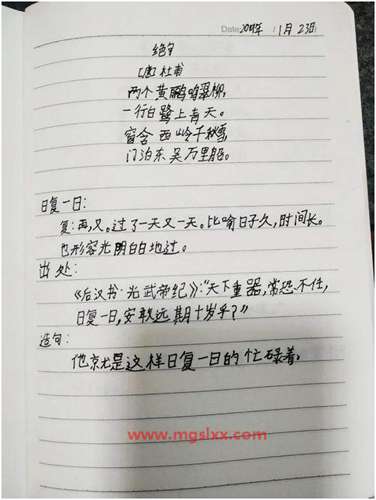 Date: 2019年 1月23日
绝句
[唐]杜甫
两个黄鹂鸣翠柳,
一行白鹭上青天。
窗含西岭千秋雪,
门泊东吴万里船。
日复一日:
复:再,又。过了一天又一天。比喻日子久,时间长。
也形容光阴白白地过。
出处:
《后汉书·光武帝纪》:“天下重器,常恐不任,
日复一日,安敢远期十岁乎?”
造句:
他就是这样日复一日的忙碌着。
www.mgslxx.com